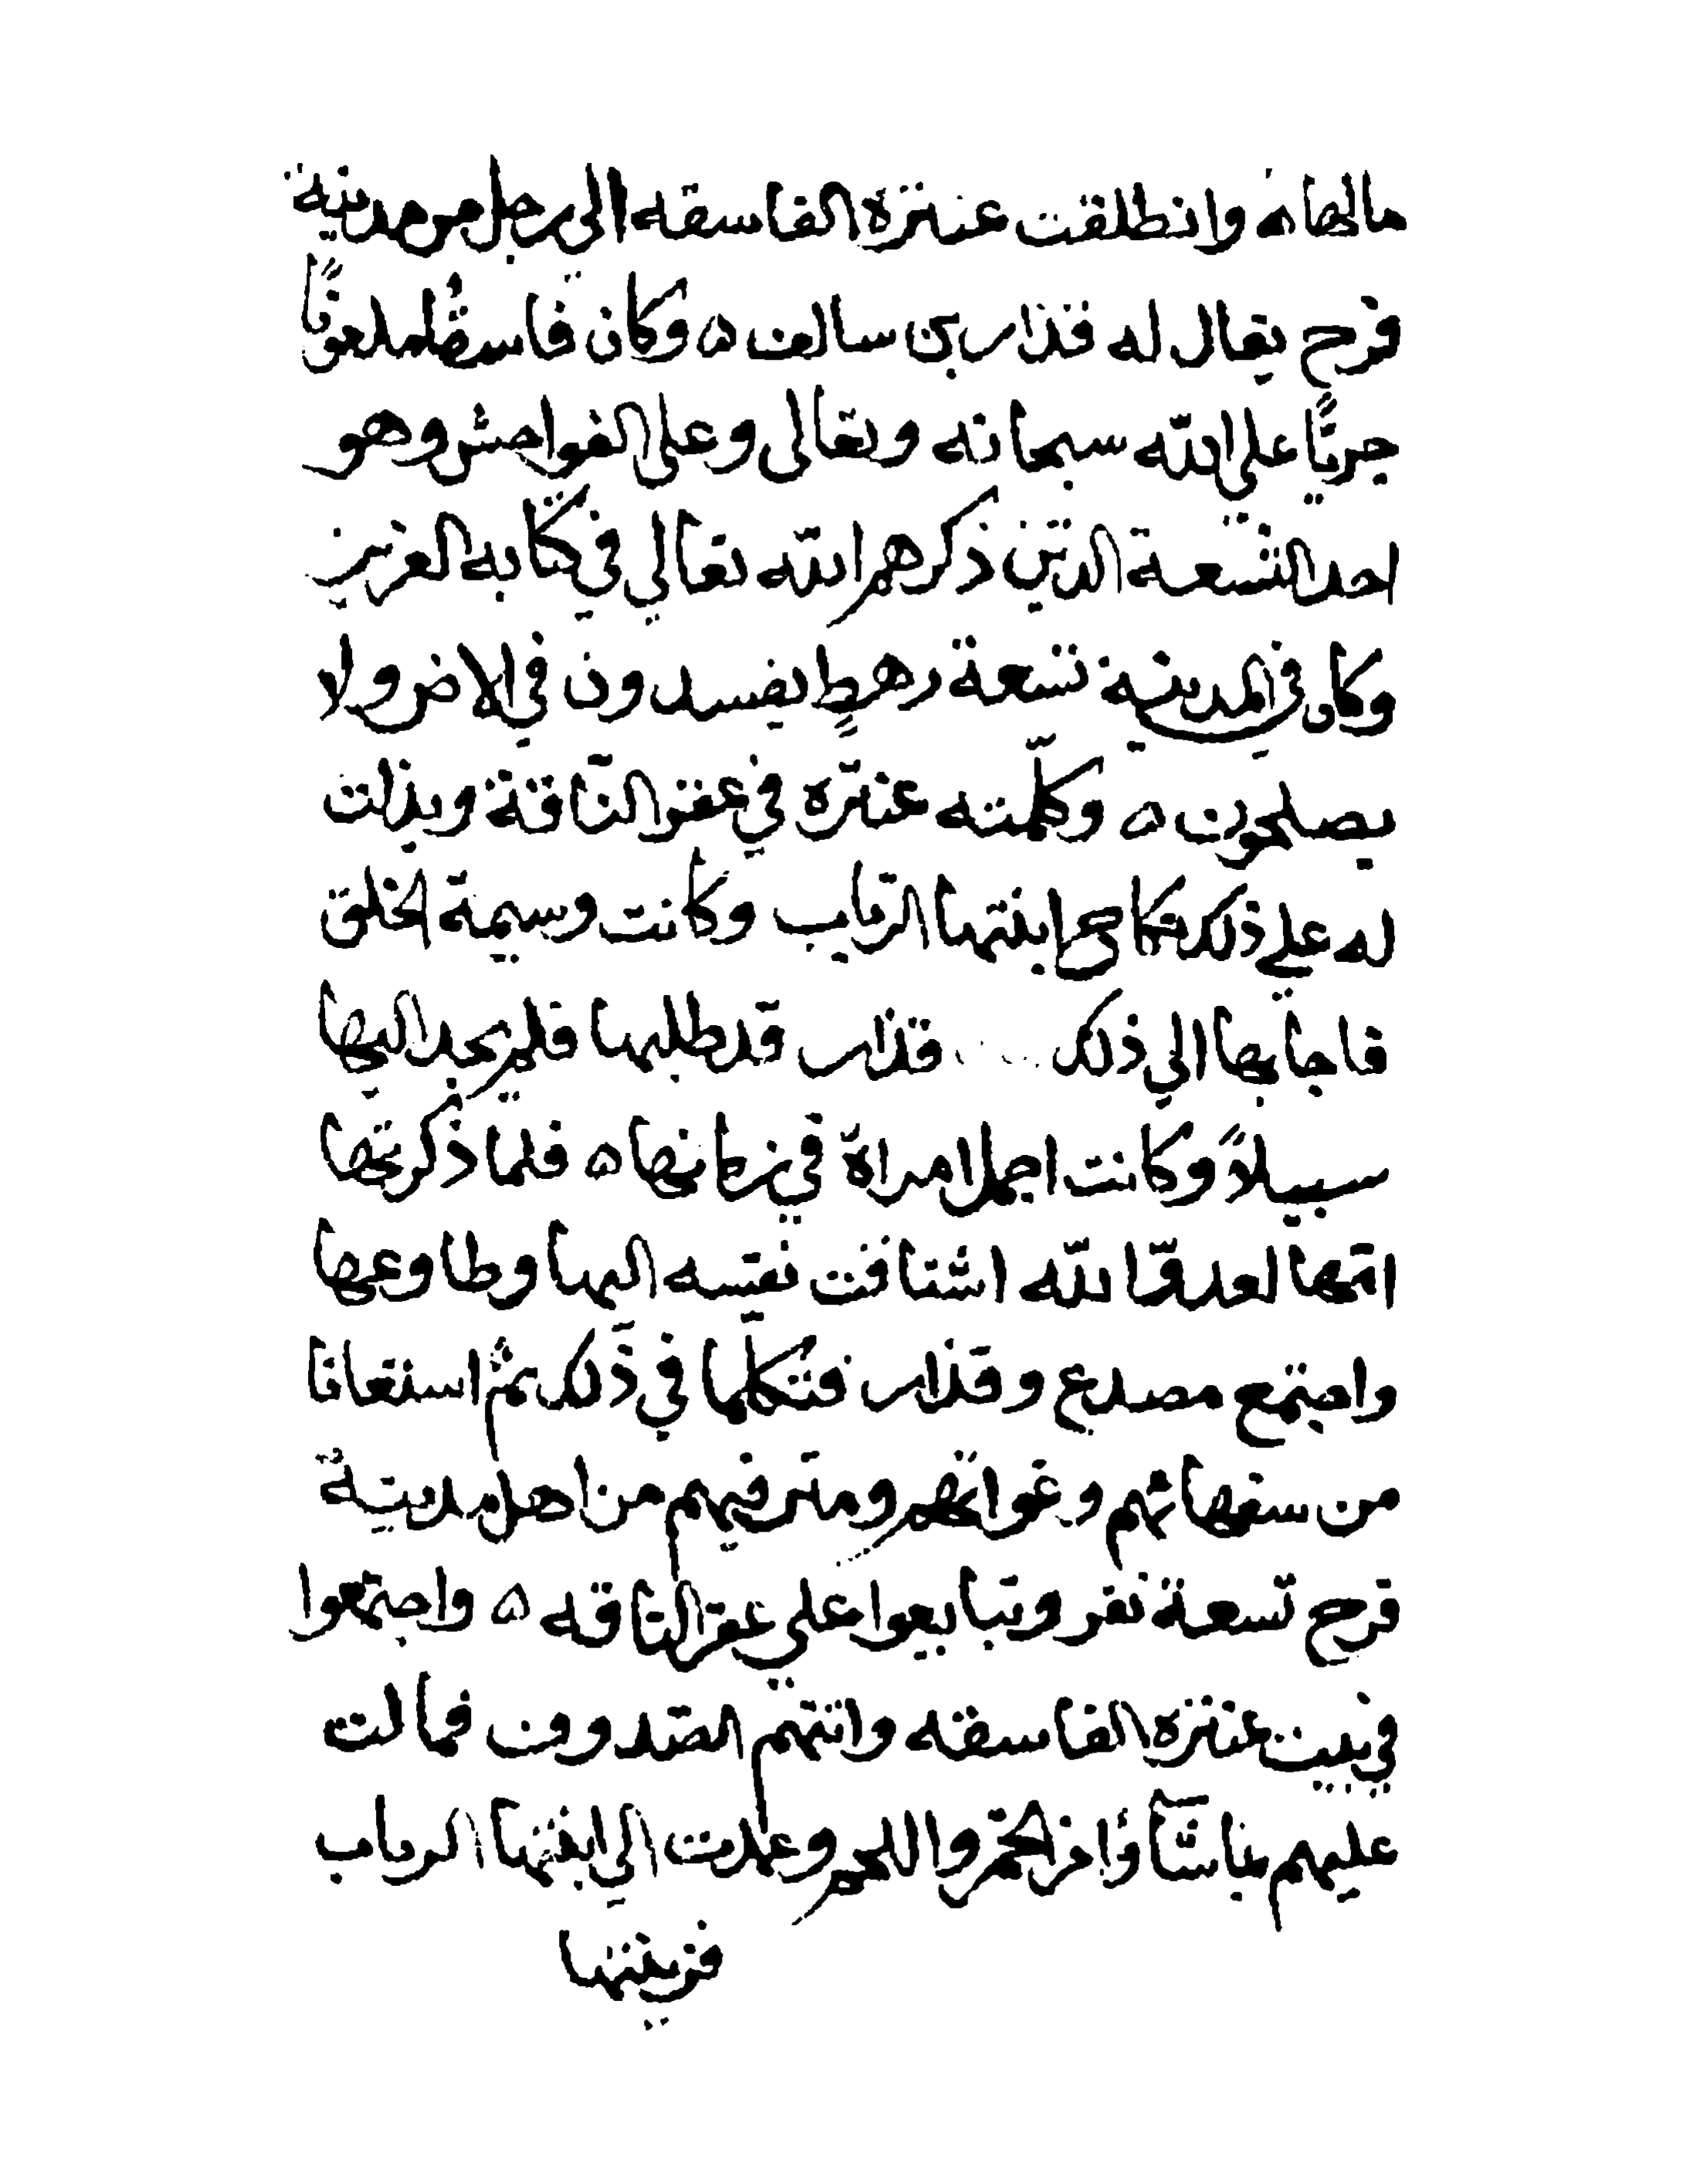 مالها ه وانطلقت عنتزة الفاسقه الى رجل من مدينة
قرح يقال له قذار بن سالف ه وكان فاسقًا ملعونًا
جريًا على الله سبحانه وتعالى وعلى الفواحش وهو
احد التسعة الذين ذكرهم الله تعالي في كتابه العزيز
وكان في المدينة تسعة رهطٍ يفسدون في الارض ولا
يصلحون ه وكلّمته عنتزة في عقر النّاقة وبذلت
له علي ذلك نكاح ابنتها الرباب وكانت وسيمة الخلق
فاجابها الي ذلك قذار قد طلبها فلم يجد اليها
سبيلاً وكانت اجمل امراة في زمانها ه فلما ذكرتها
امّها لعدوّ الله اشتاقت نفسه اليها وطاوعها
واجتمع مصدع وقذار فتكلما في ذلك ثم استعانا
من سفهائهم وغواتهم ومترفيهم من اهل مدينة
قرح تسعة نفر وتبايعوا علي عقر النّاقه ه واجتمعوا
في بيت عنتزه الفاسقه واتتهم الصّدوف فمالت
عليهم بما شآؤا من الخمر واللحم وعمدت الي ابنتها الرباب
فزينتها